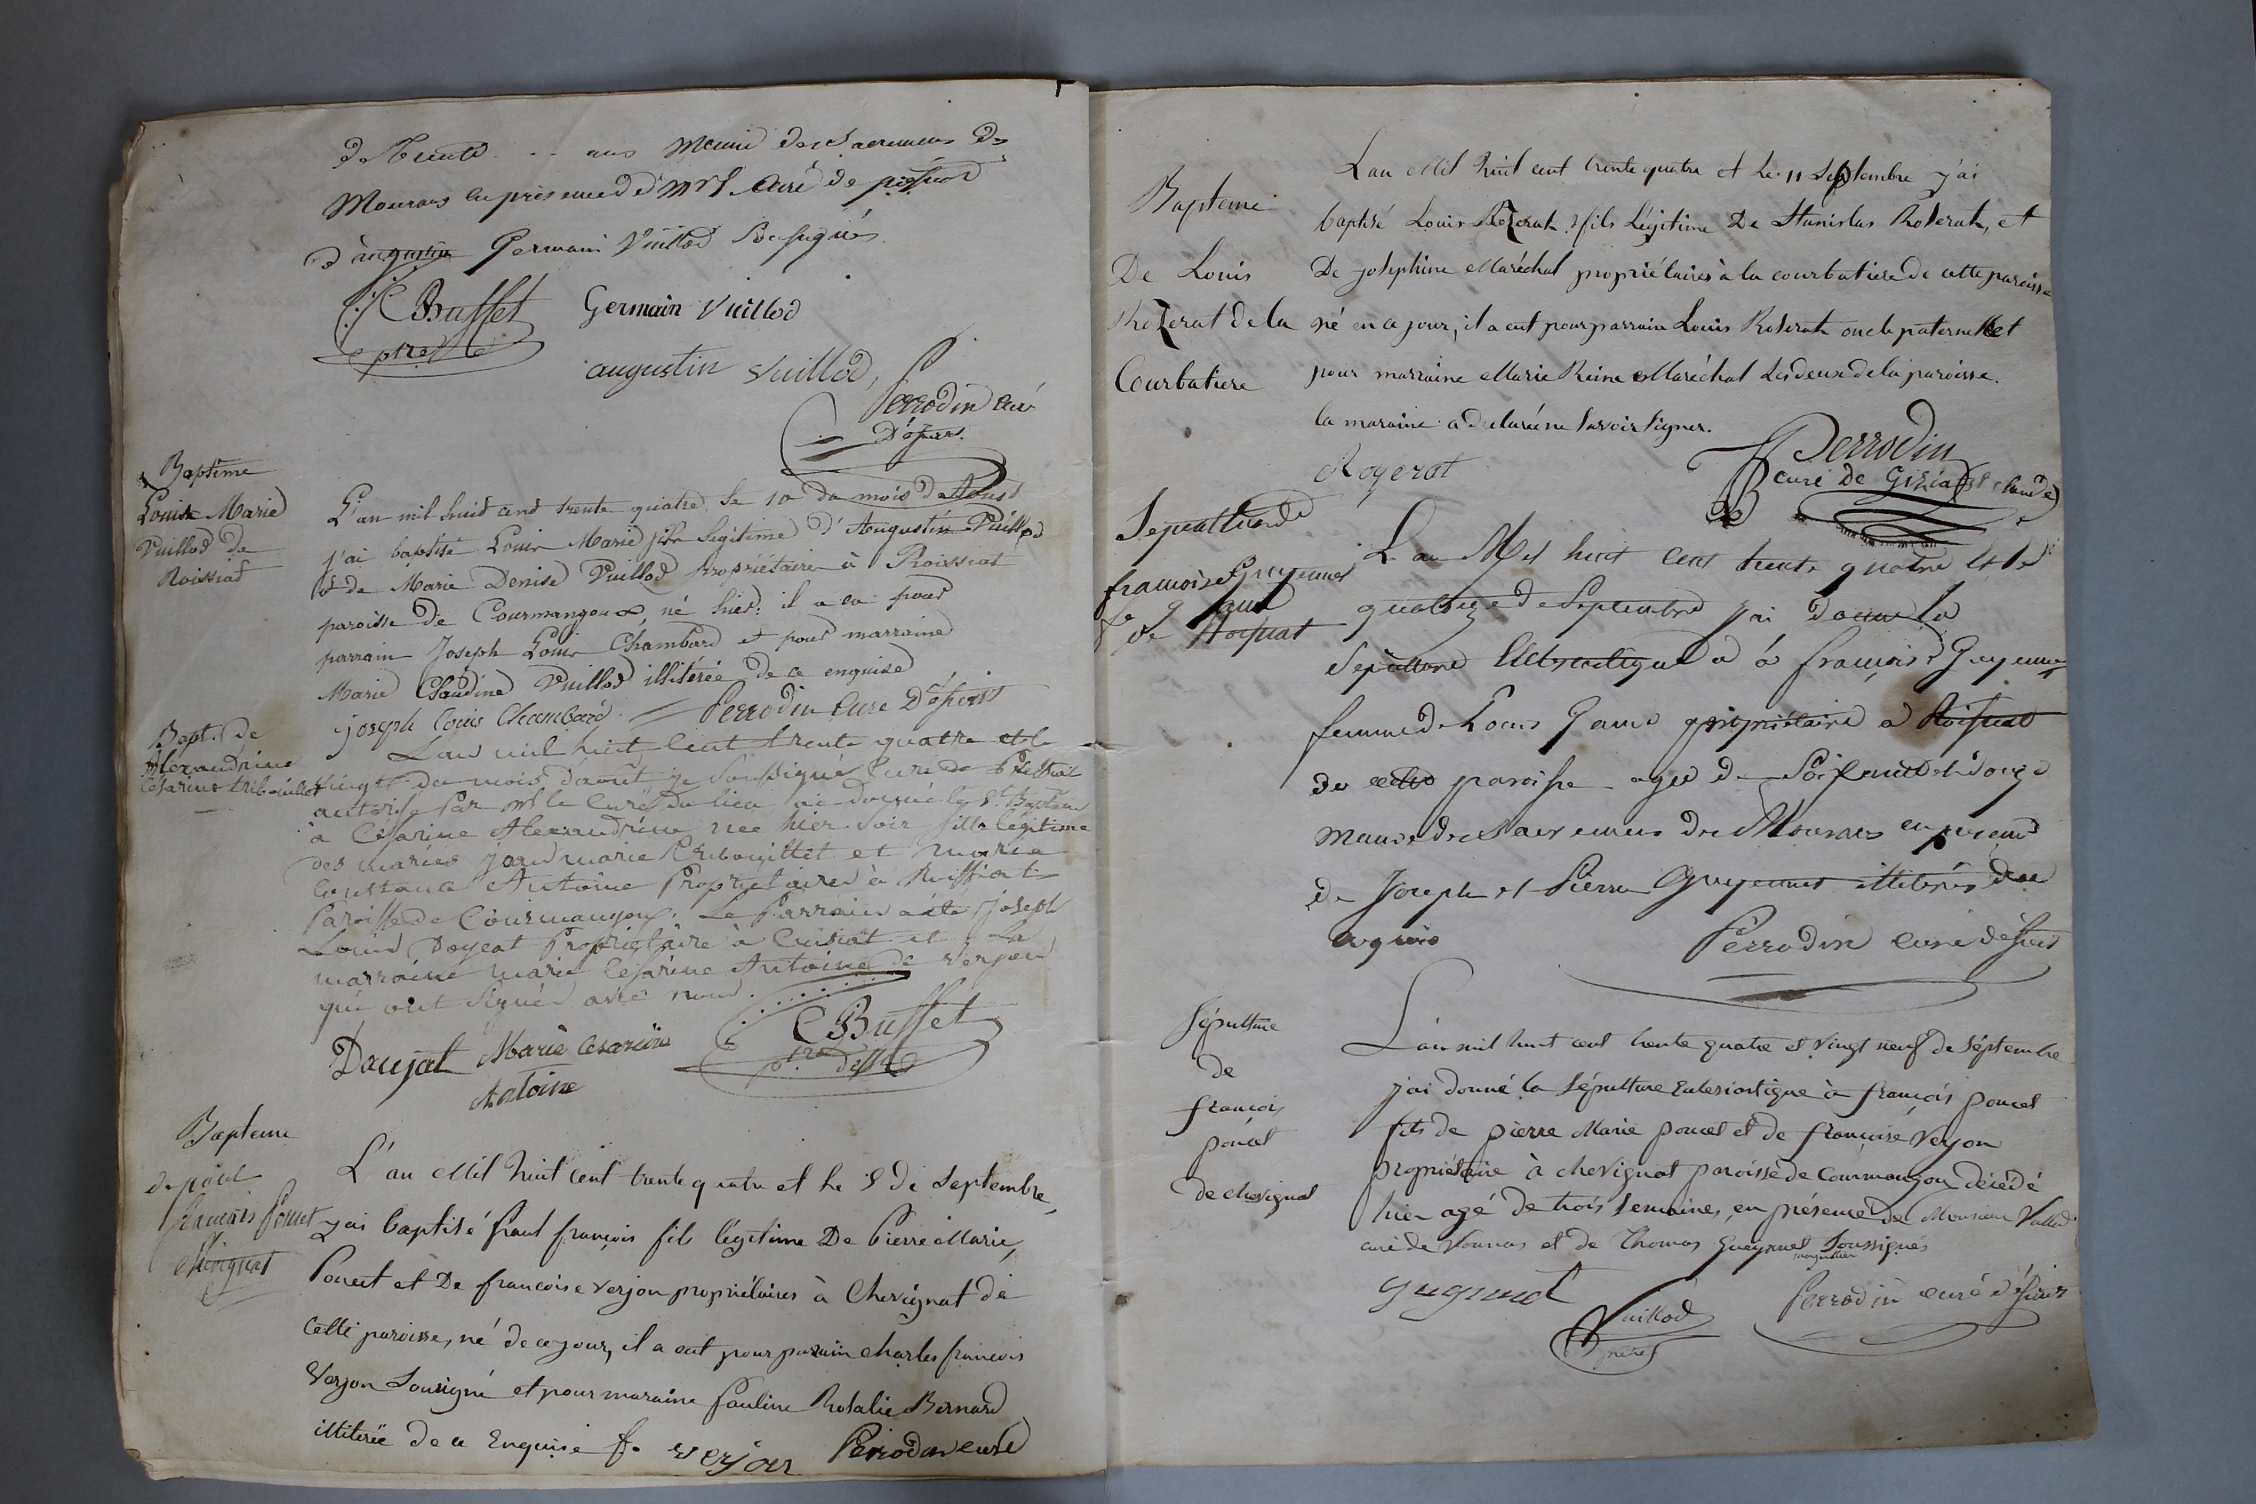 de trente .. ans Muni des Sacremens des
Mourans en présence de Mr Curé de pressiat
d'augustin Germain Vuillod Soussignés
C Buffet
ptre
Germain Vuillod
augustin Vuillod,
Perrodin curé
Baptême
Louis Marie
Vuillod de
Roissiat
L'an mil huit cent trente quatre le 10 du mois d'Aoust
j'ai baptisé Louis Marie fils légitime d'Augustin Vuillod
et de Marie Denise Vuillod propriétaire à Roissiat
paroisse de Courmangoux, né hier: il a eu pour
parrain Joseph Louis Chambard et pour marraine
Marie Claudine Vuillod illiterée de ce enquise
joseph louis Chambard Perrodin Curé
Bapt. de
Alexandrine
Césarine tribouillet
L'an mil huit cent trente quatre et le
vingt du mois d'août je soussigné Curé de Pressiat
autorisé par Mr le Curé du lieu ai donné le St Baptême
à Césarine Alexandrine née hier soir fille légitime
des mariés jean marie tribouillet et marie
Constance Antoine Propriétaires à Roissiat
Paroisse de Courmangoux. Le Parrain a été joseph
Louis Propriétaire à Cuisiat et La
marraine marie Césarine Antoine de verjon
qui ont signé avec nous.
Daujat Marie Cesarine
Antoine
C Buffet
ptre
Bapteme
de paul
françois Poncet
L'an Mil huit cent trente quatre et le 8 de Septembre,
j'ai baptisé Paul françois fils légitime De Pierre Marie,
Poncet et De françoise verjon propriétaires à Chevignat de
cette paroisse, né de ce jour, il a eut pour parrain charles françois
Verjon Sousigné et pour maraine Pauline Rosalie Bernard
illiterée de ce Enquise f. verjon Perrodin curé
Bapteme
De Louis
Rozerat de la
Courbatiere
L'an Mil huit cent trente quatre et Le 11 Septembre j'ai
baptisé Louis Rozerat fils légitime De Stanislas Roserat, et
De Josephine Maréchal propriétaires à la courbatiere de cette paroisse
né en ce jour, il a eut pour parrain Louis Roserat oncle paternel et
pour marraine Marie Reine Maréchal Les deux de la paroisse.
la maraine a declaré ne Savoir Signer.
Rozerat
Perrodin
curé de Gizia
Sepulture de
françoise Guyennet
fe Gaud
de Roissiat
L'an Mil huit cent trente quatre et le
quatorze de Septembre j'ai donné la
Sépulture Ecclesiastique à françoise Guyennet
femme de Louis Gaud propriétaire à Roissiat
de cette paroisse agée de Soixante et douze
Munie des Sacremens des Mourans en présence
de Joseph et Pierre Guyennet illiterés de ce
enquis
Perrodin curé
Sépulture
de
françois
poncet
de chevignat
L'an mil huit cent trente quatre et vingt neuf de Séptembre
j'ai donné la Sépulture Eclesiastique à françois poncet
fils de pierre Marie poncet et de françoise Verjon
propriétaire à chevignat paroisse de Courmangou décédé
hier agé de trois Semaines, en présence de Monsieur Vuillod
curé de Vonnas et de Thomas Gueynet Soussignés
Vuillod
prêtre
Perrodin curé